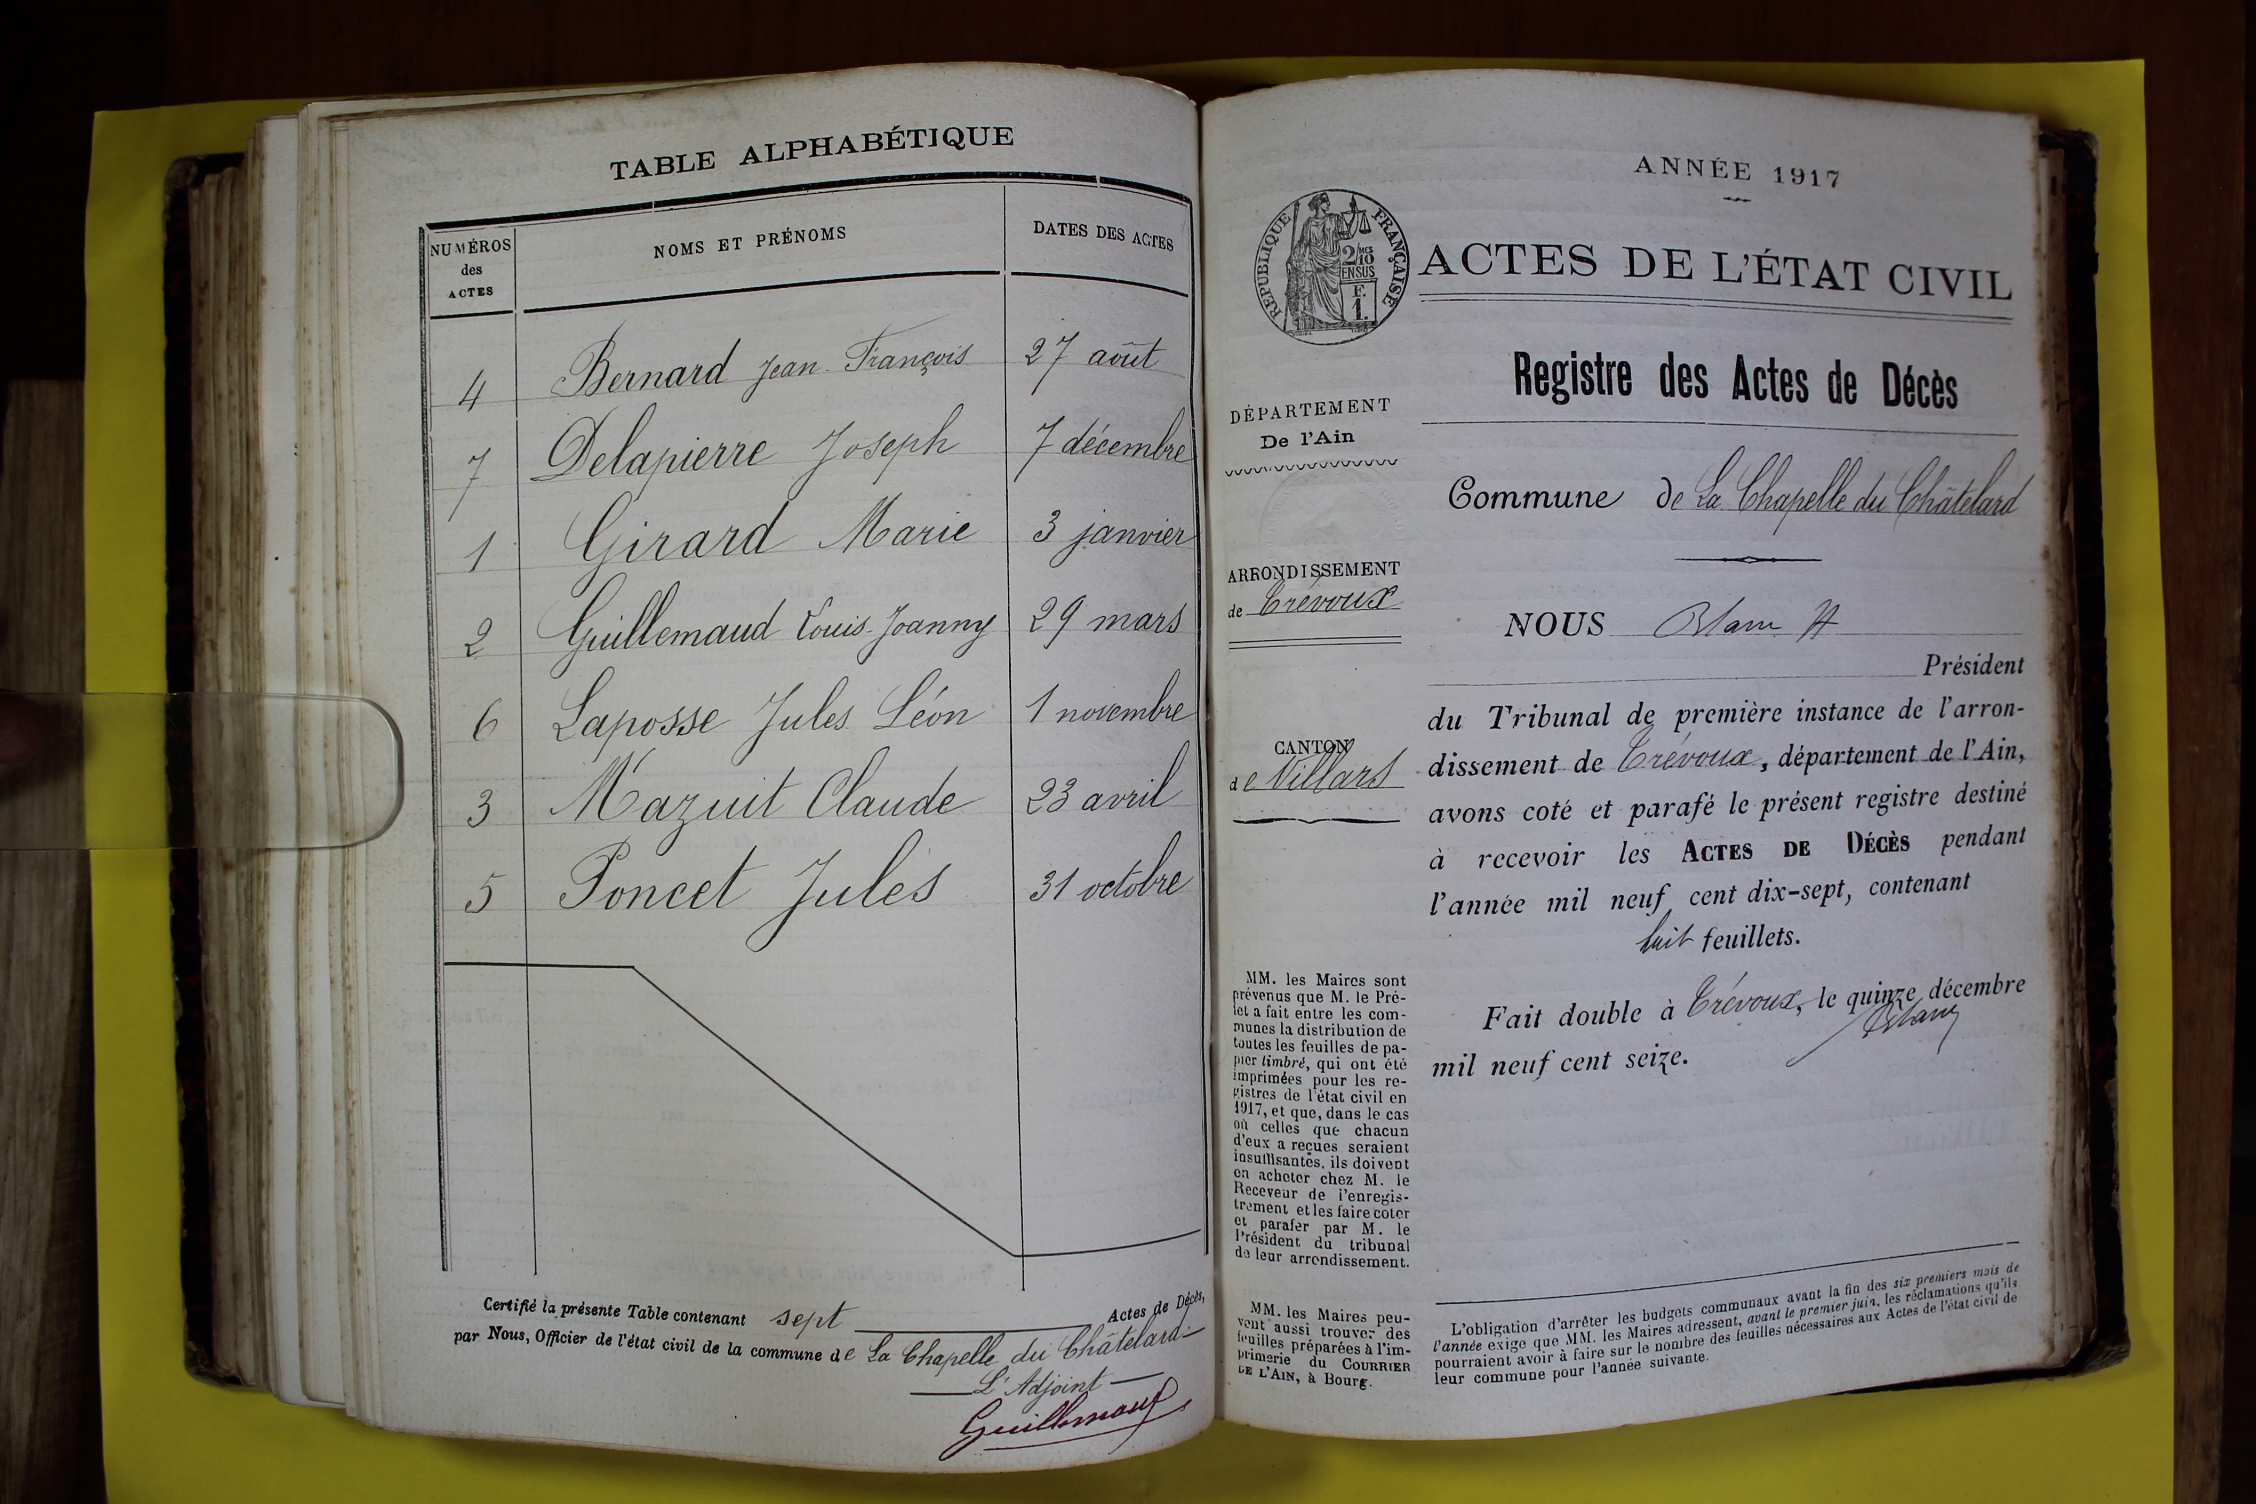 TABLE ALPHABÉTIQUE
NUMÉROS des ACTES NOMS ET PRÉNOMS DATES DES ACTES
4 Bernard Jean François 27 août
7 Delapierre Joseph 7 décembre
1 Girard Marie 3 janvier
2 Guillemaud Louis-Joanny 29 mars
6 Laposse Jules Léon 1 novembre
3 Mazuit Claude 23 avril
5 Poncet Jules 31 octobre
Certifié la présente Table contenant sept Actes de Décès,
par Nous, Officier de l'état civil de la commune de La Chapelle du Châtelard
L'Adjoint
Guillemaud
ANNÉE 1917
RÉPUBLIQUE FRANÇAISE
2/10 MES
EN SUS
F.
1.
ACTES DE L'ÉTAT CIVIL
Registre des Actes de Décès
DÉPARTEMENT
De l'Ain
Commune de La Chapelle du Châtelard
ARRONDISSEMENT
de Trévoux
CANTON
de Villars
NOUS
Président
du Tribunal de première instance de l'arron-
dissement de Trévoux, département de l'Ain,
avons coté et parafé le présent registre destiné
à recevoir les ACTES DE DÉCÈS pendant
l'année mil neuf cent dix-sept, contenant
huit feuillets.
Fait double à Trévoux, le quinze décembre
mil neuf cent seize.
MM. les Maires sont
prévenus que M. le Pré-
fet a fait entre les com-
munes la distribution de
toutes les feuilles de pa-
pier timbré, qui ont été
imprimées pour les re-
gistres de l'état civil en
1917, et que, dans le cas
où celles que chacun
d'eux a reçues seraient
insuffisantes, ils doivent
en acheter chez M. le
Receveur de l'enregis-
trement et les faire coter
et parafer par M. le
Président du tribunal
de leur arrondissement.
MM. les Maires peu-
vent aussi trouver des
feuilles préparées à l'im-
primerie du COURRIER
DE L'AIN, à Bourg.
L'obligation d'arrêter les budgets communaux avant la fin des six premiers mois de
l'année exige que MM. les Maires adressent, avant le premier juin, les réclamations qu'ils
pourraient avoir à faire sur le nombre des feuilles nécessaires aux Actes de l'état civil de
leur commune pour l'année suivante.